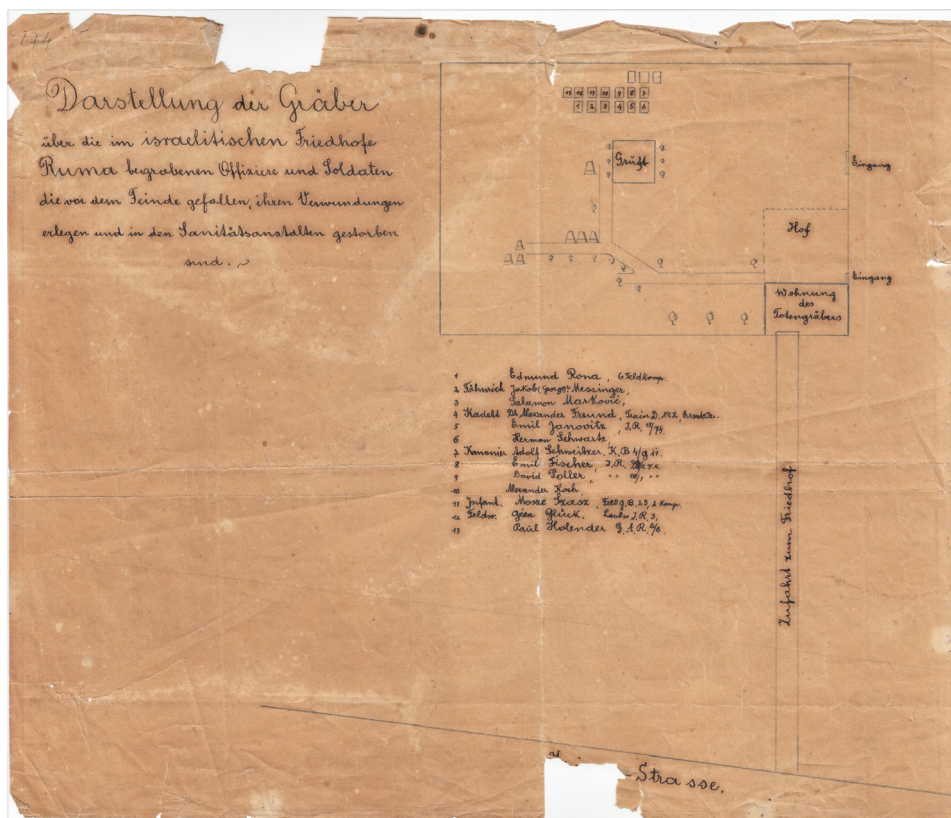 174
Darstellung der Gräber
über die im israelitischen Friedhofe
Ruma begrabenen Offiziere und Soldaten
die vor dem Feinde gefallen, ihren Verwundungen
erlegen und in den Sanitätsanstalten gestorben
sind.
13 12 11 10 9 8 7
1 2 3 4 5 6
Gruft
Eingang
Hof
Eingang
Wohnung
des
Totengräbers
1 Edmund Rona, 6 Feldkomp.
2 Fähnrich Jakob Messinger,
3 Salamon Marković,
4 Kadett Dr. Alexander Freund, Train D. No 2,
5 Emil Janovitz, J.R.
6 Herman Schwartz,
7 Kanonier Adolf Schweitzer, K.B. 4/9
8 Emil Fischer, J.R.
9 David Poller, " "
10 Alexander Koch,
11 Infant. Mosze Szasz, Feld J.B. 23, 2 Komp.
12 Feldw. Géza Glück, Landw. J.R. 3,
13 Paul Holender
Zufahrt zum Friedhof
-Strasse.